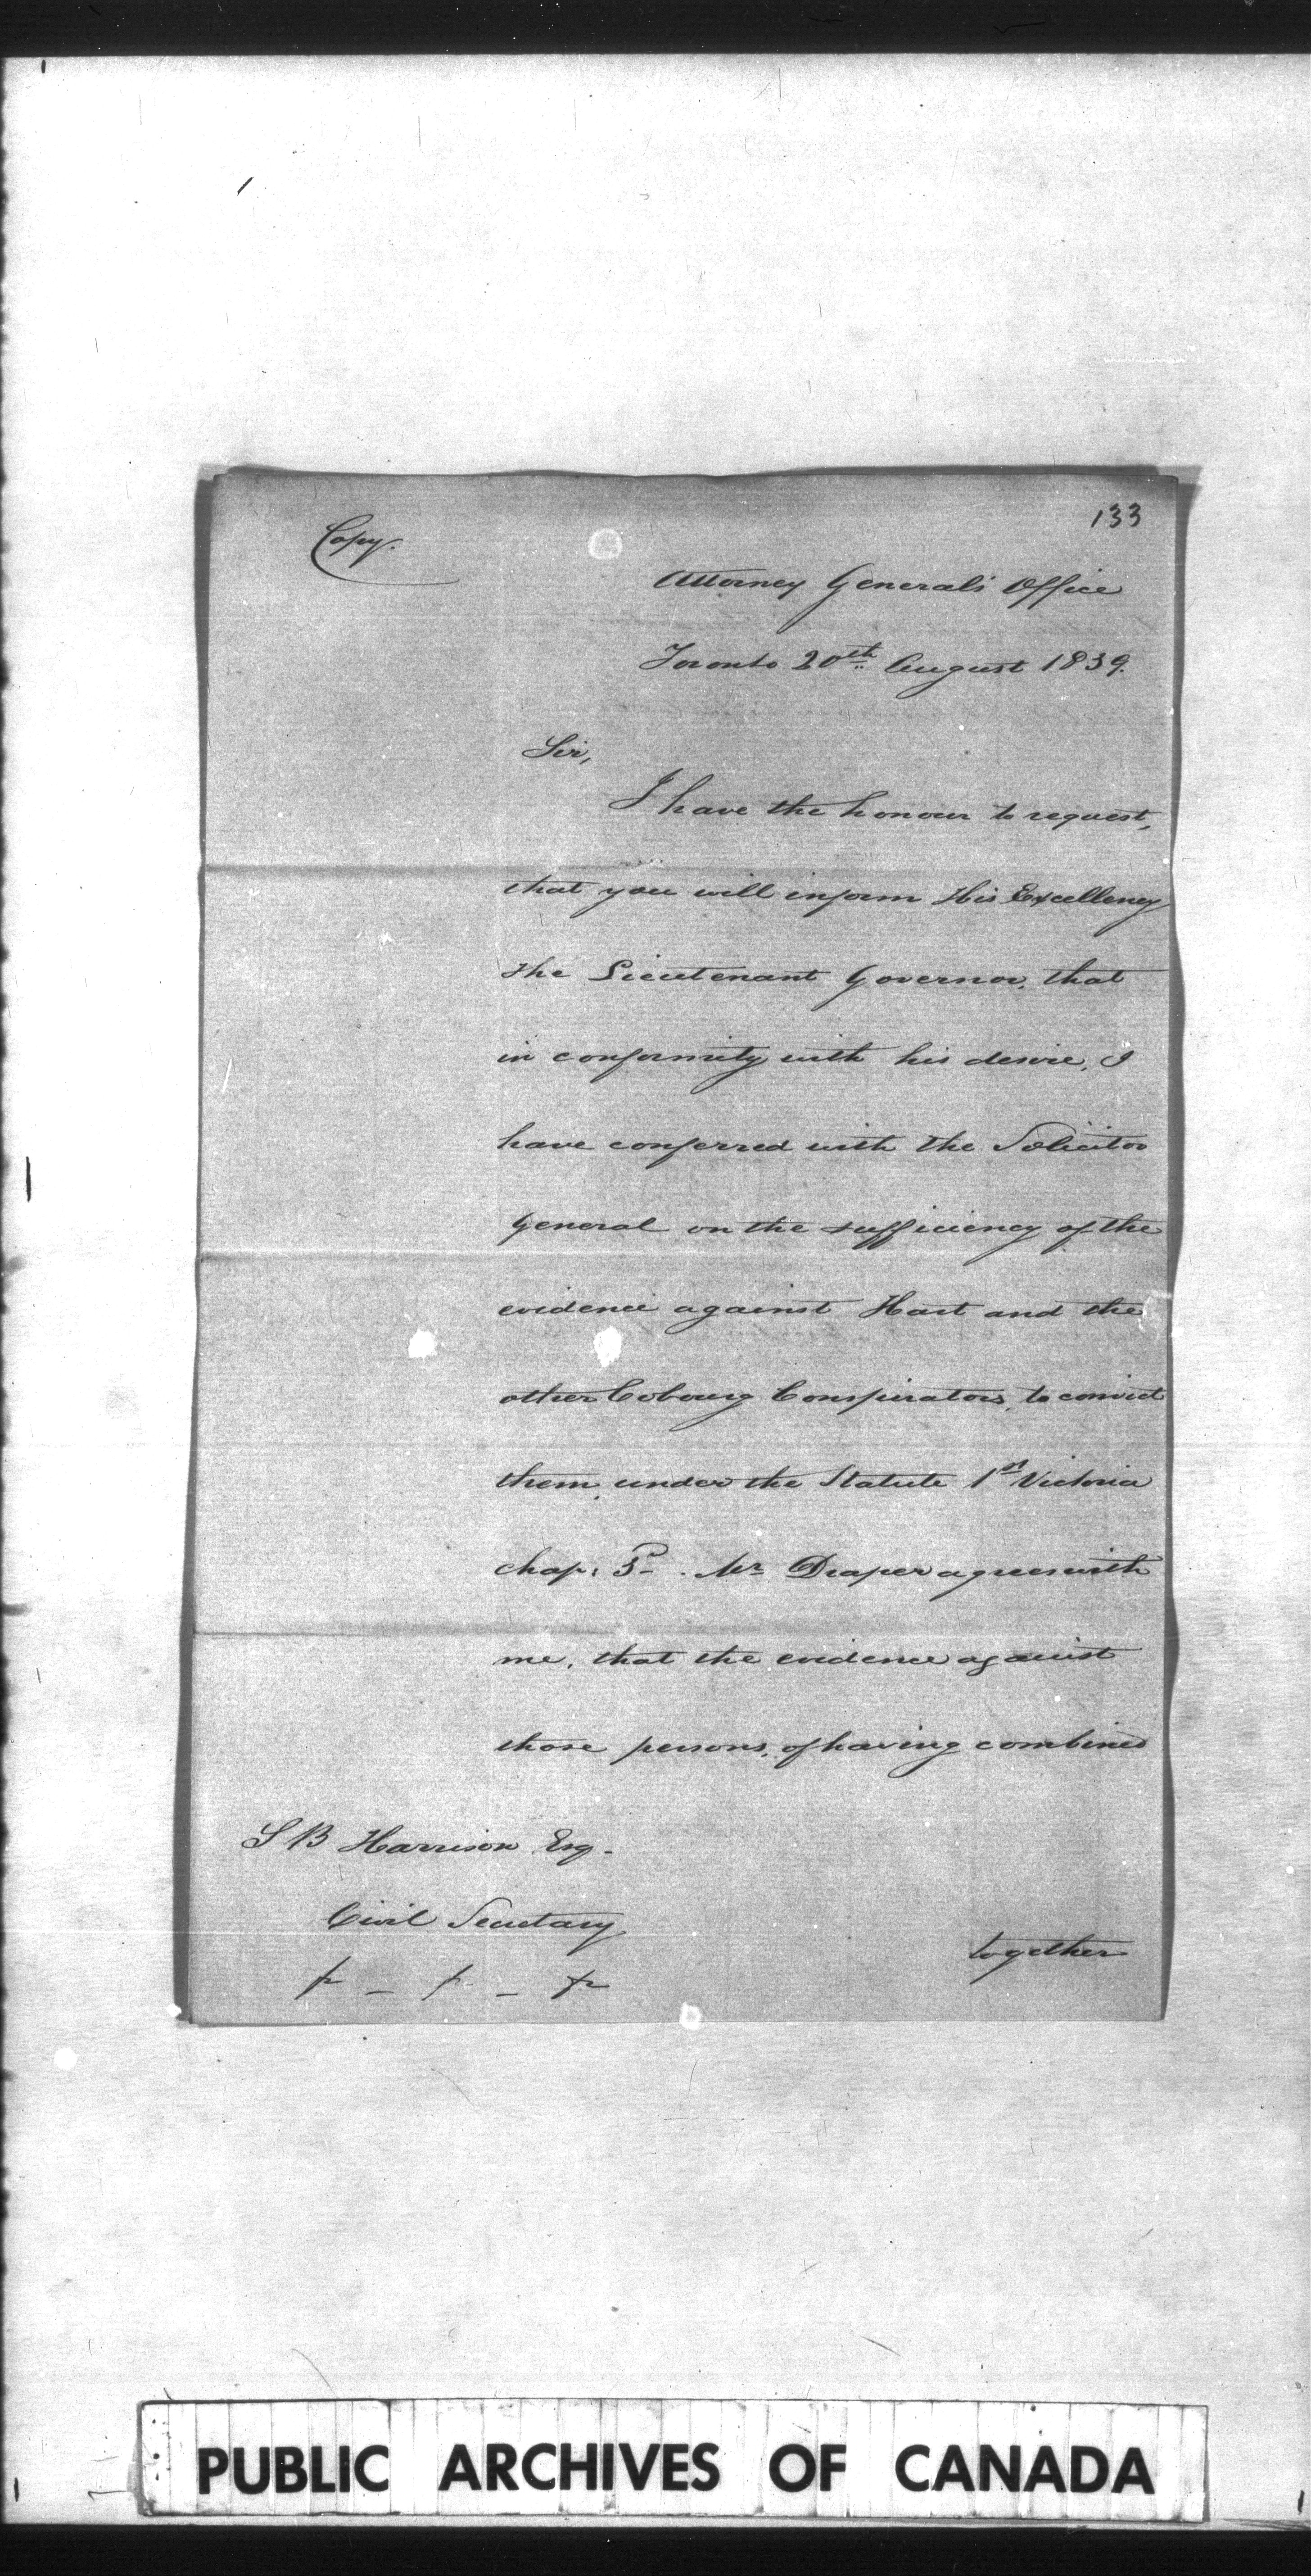 133
Copy.
Attorney General's Office
Toronto 20th August 1839.
Sir,
I have the honour to request,
that you will inform His Excellency
the Lieutenant Governor, that
in conformity with his desire, I
have conferred with the Solicitor
General on the sufficiency of the
evidence against Hart and the
other Cobourg Conspirators, to convict
them, under the Statute 1st Victoria
chap: 3 . Mr Draper agrees with
me, that the evidence against
those persons, of having combined
S B Harrison Esq.
Civil Secretary
together
PUBLIC ARCHIVES OF CANADA